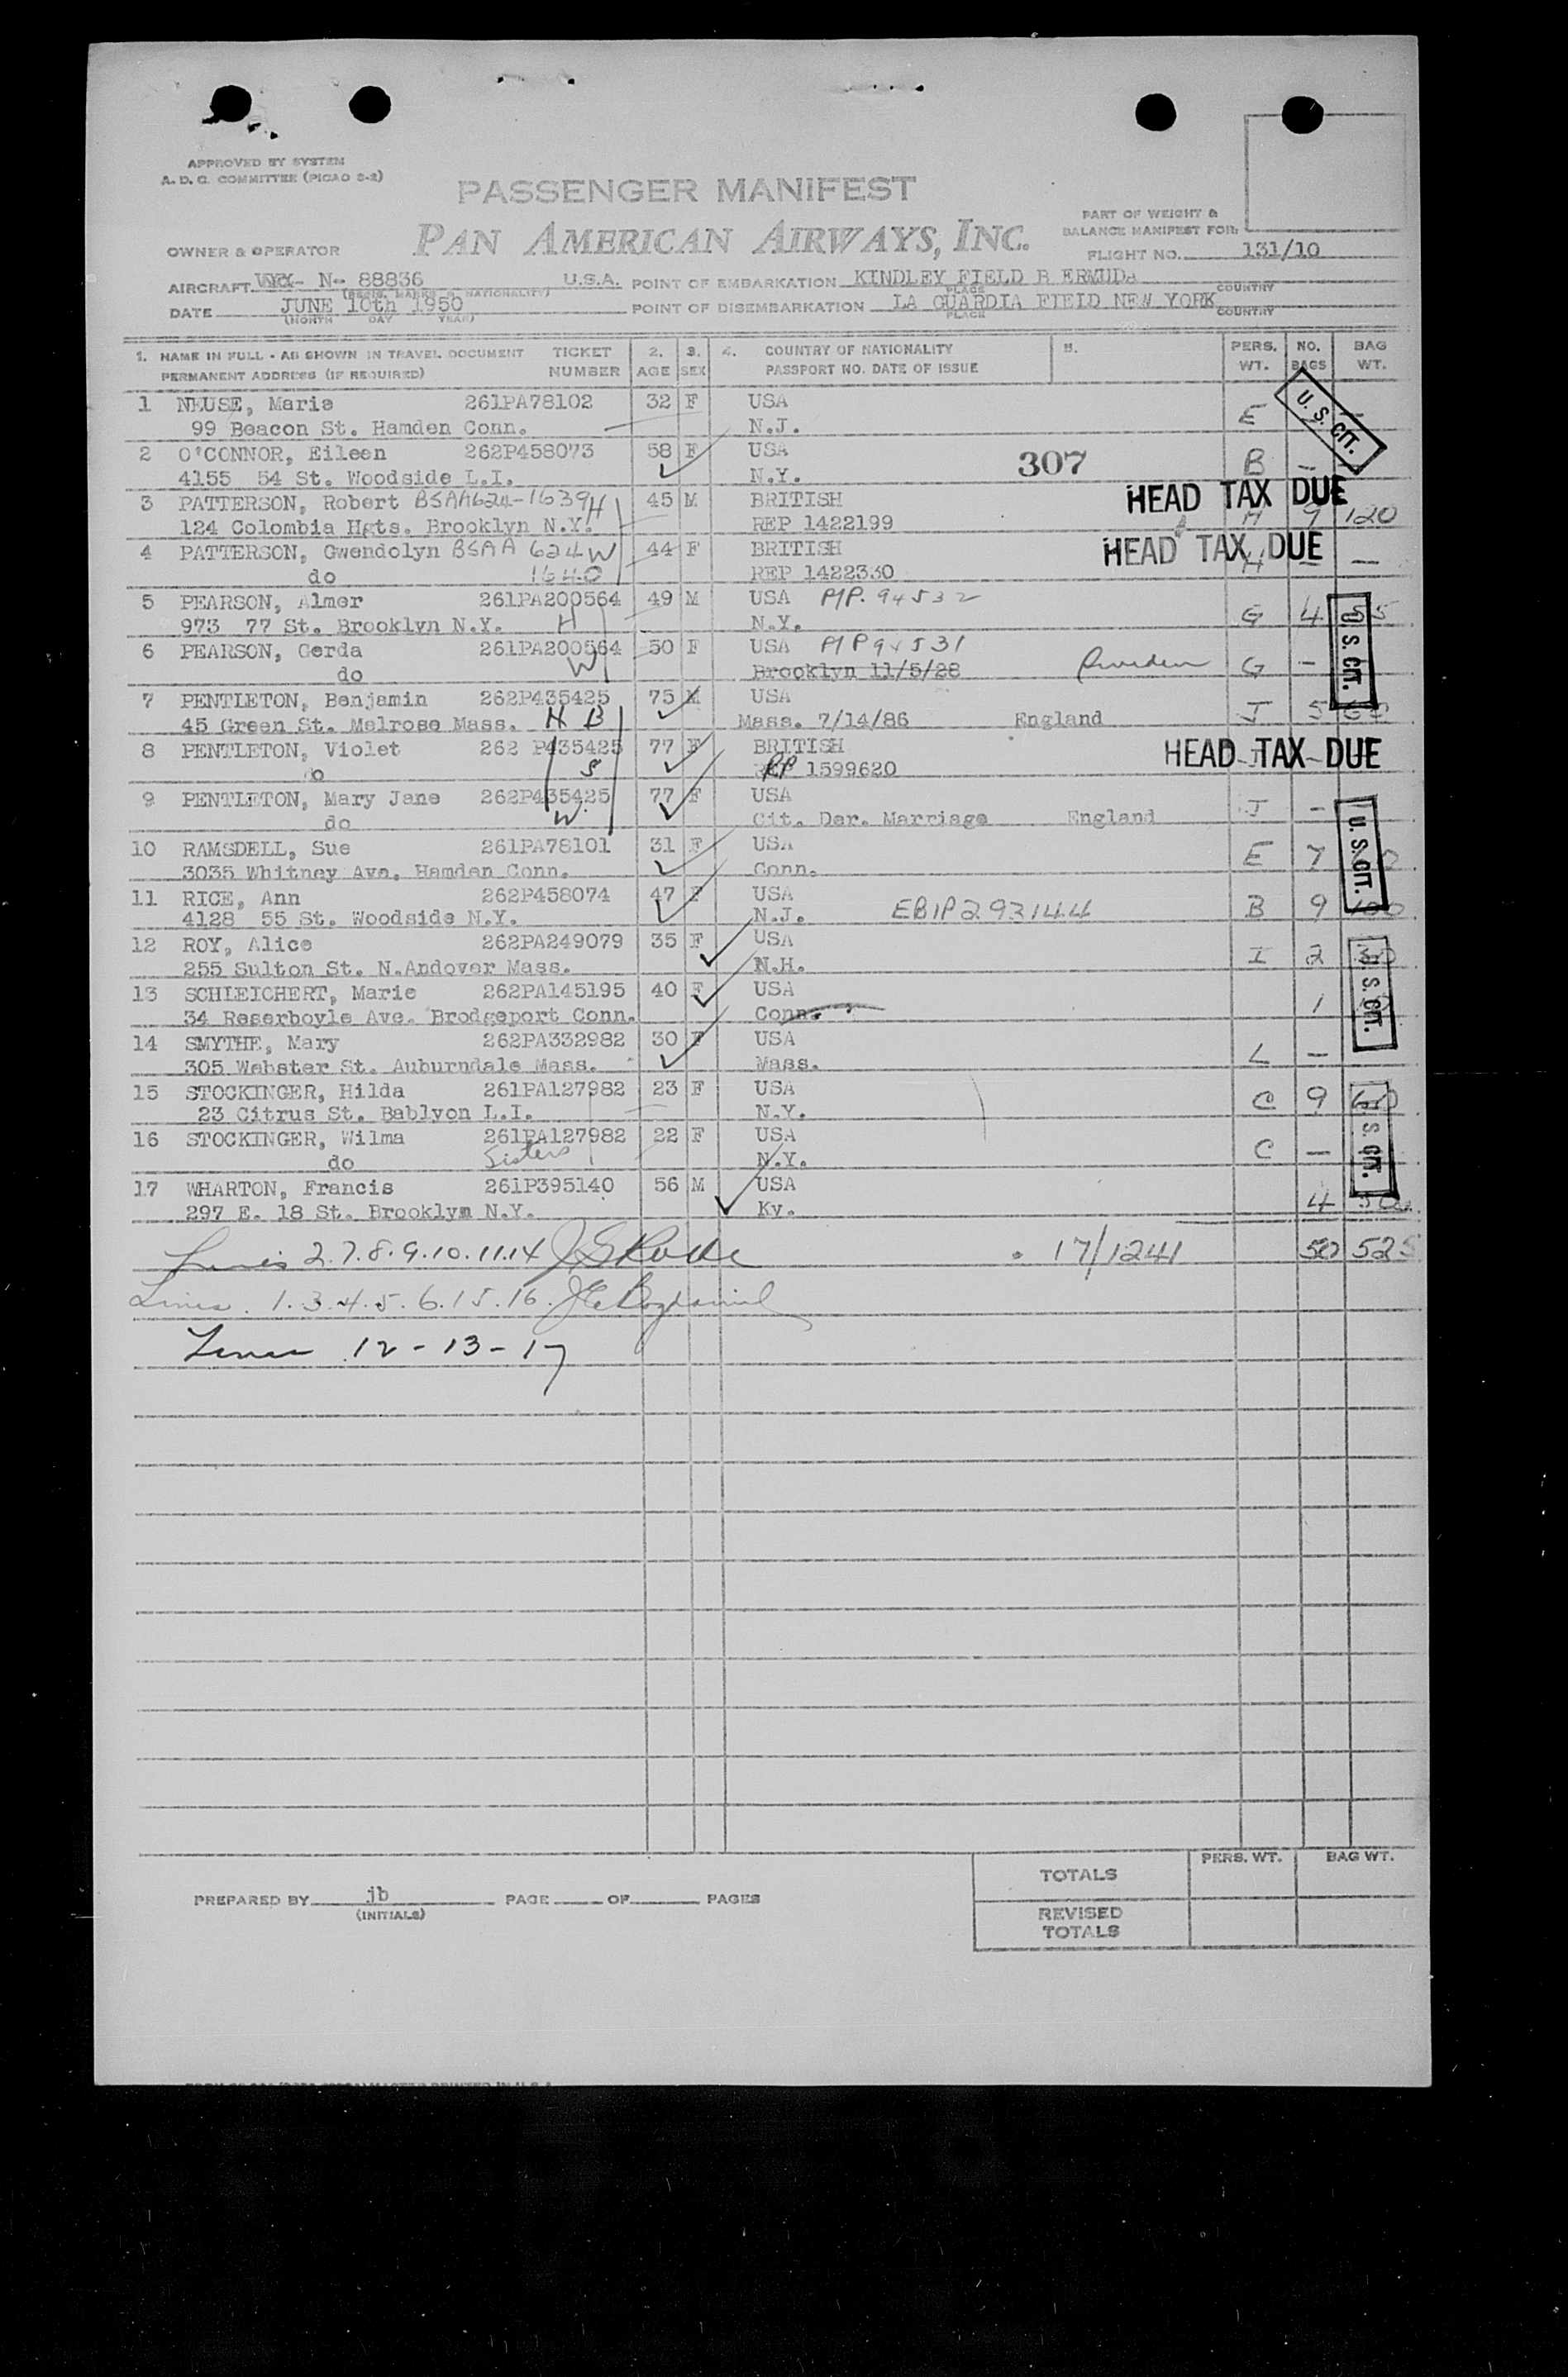 APPROVED BY SYSTEM
A. D. C. COMMITTEE (PICAO 2-2)
PASSENGER MANIFEST
PAN AMERICAN AIRWAYS, INC.
PART OF WEIGHT &
BALANCE MANIFEST FOR:
OWNER & OPERATOR
FLIGHT NO. 131/10
AIRCRAFT N- 88836 U.S.A. POINT OF EMBARKATION KINDLEY FIELD B ERMUDA
(REGIS. MARKS & NATIONALITY) PLACE COUNTRY
DATE JUNE 10th 1950 POINT OF DISEMBARKATION LA GUARDIA FIELD NEW YORK
(MONTH DAY YEAR) PLACE COUNTRY
1. NAME IN FULL - AS SHOWN IN TRAVEL DOCUMENT TICKET 2. 3. 4. COUNTRY OF NATIONALITY 5. PERS. NO. BAG
PERMANENT ADDRESS (IF REQUIRED) NUMBER AGE SEX PASSPORT NO. DATE OF ISSUE WT. BAGS WT.
1 NEUSE, Marie 261PA78102 32 F USA U. S. CIT.
99 Beacon St. Hamden Conn. N.J. E
2 O'CONNOR, Eileen 262P458073 58 F USA 307
4155 54 St. Woodside L.I. N.Y. B —
3 PATTERSON, Robert BSAA624-1639 H 45 M BRITISH HEAD TAX DUE
124 Colombia Hgts. Brooklyn N.Y. REP 1422199 H 9 120
4 PATTERSON, Gwendolyn BSAA 624 W 44 F BRITISH HEAD TAX DUE
do 1640 REP 1422330 H — —
5 PEARSON, Almer 261PA200564 49 M USA PP. 94532
973 77 St. Brooklyn N.Y. H N.Y. G 4 55
6 PEARSON, Gerda 261PA200564 50 F USA PP94531 U. S. CIT.
do W Brooklyn 11/5/28 Sweden G —
7 PENTLETON, Benjamin 262P435425 75 M USA
45 Green St. Melrose Mass. H B Mass. 7/14/86 England J 5
8 PENTLETON, Violet 262 P435425 77 F BRITISH HEAD TAX DUE
do S PP 1599620
9 PENTLETON, Mary Jane 262P435425 77 F USA
do W. Cit. Der. Marriage England J —
10 RAMSDELL, Sue 261PA78101 31 F USA U. S. CIT.
3035 Whitney Ave. Hamden Conn. Conn. E 7
11 RICE, Ann 262P458074 47 F USA
4128 55 St. Woodside N.Y. N.J. EBIP293144 B 9
12 ROY, Alice 262PA249079 35 F USA
255 Sulton St. N.Andover Mass. N.H. I 2
13 SCHLEICHERT, Marie 262PA145195 40 F USA U. S. CIT.
34 Reserboyle Ave. Brodgeport Conn. Conn. 1
14 SMYTHE, Mary 262PA332982 30 F USA
305 Webster St. Auburndale Mass. Mass. L —
15 STOCKINGER, Hilda 261PA127982 23 F USA
23 Citrus St. Bablyon L.I. N.Y. C 9
16 STOCKINGER, Wilma 261PA127982 22 F USA U. S. CIT.
do Sisters N.Y. C —
17 WHARTON, Francis 261P395140 56 M USA
297 E. 18 St. Brooklym N.Y. Ky. 4
Lines 2.7.8.9.10.11.14 17/1241 50 525
Lines. 1.3.4.5.6.15.16.
Lines 12-13-17
PERS. WT. BAG WT.
TOTALS
PREPARED BY jb PAGE OF PAGES
(INITIALS)
REVISED
TOTALS